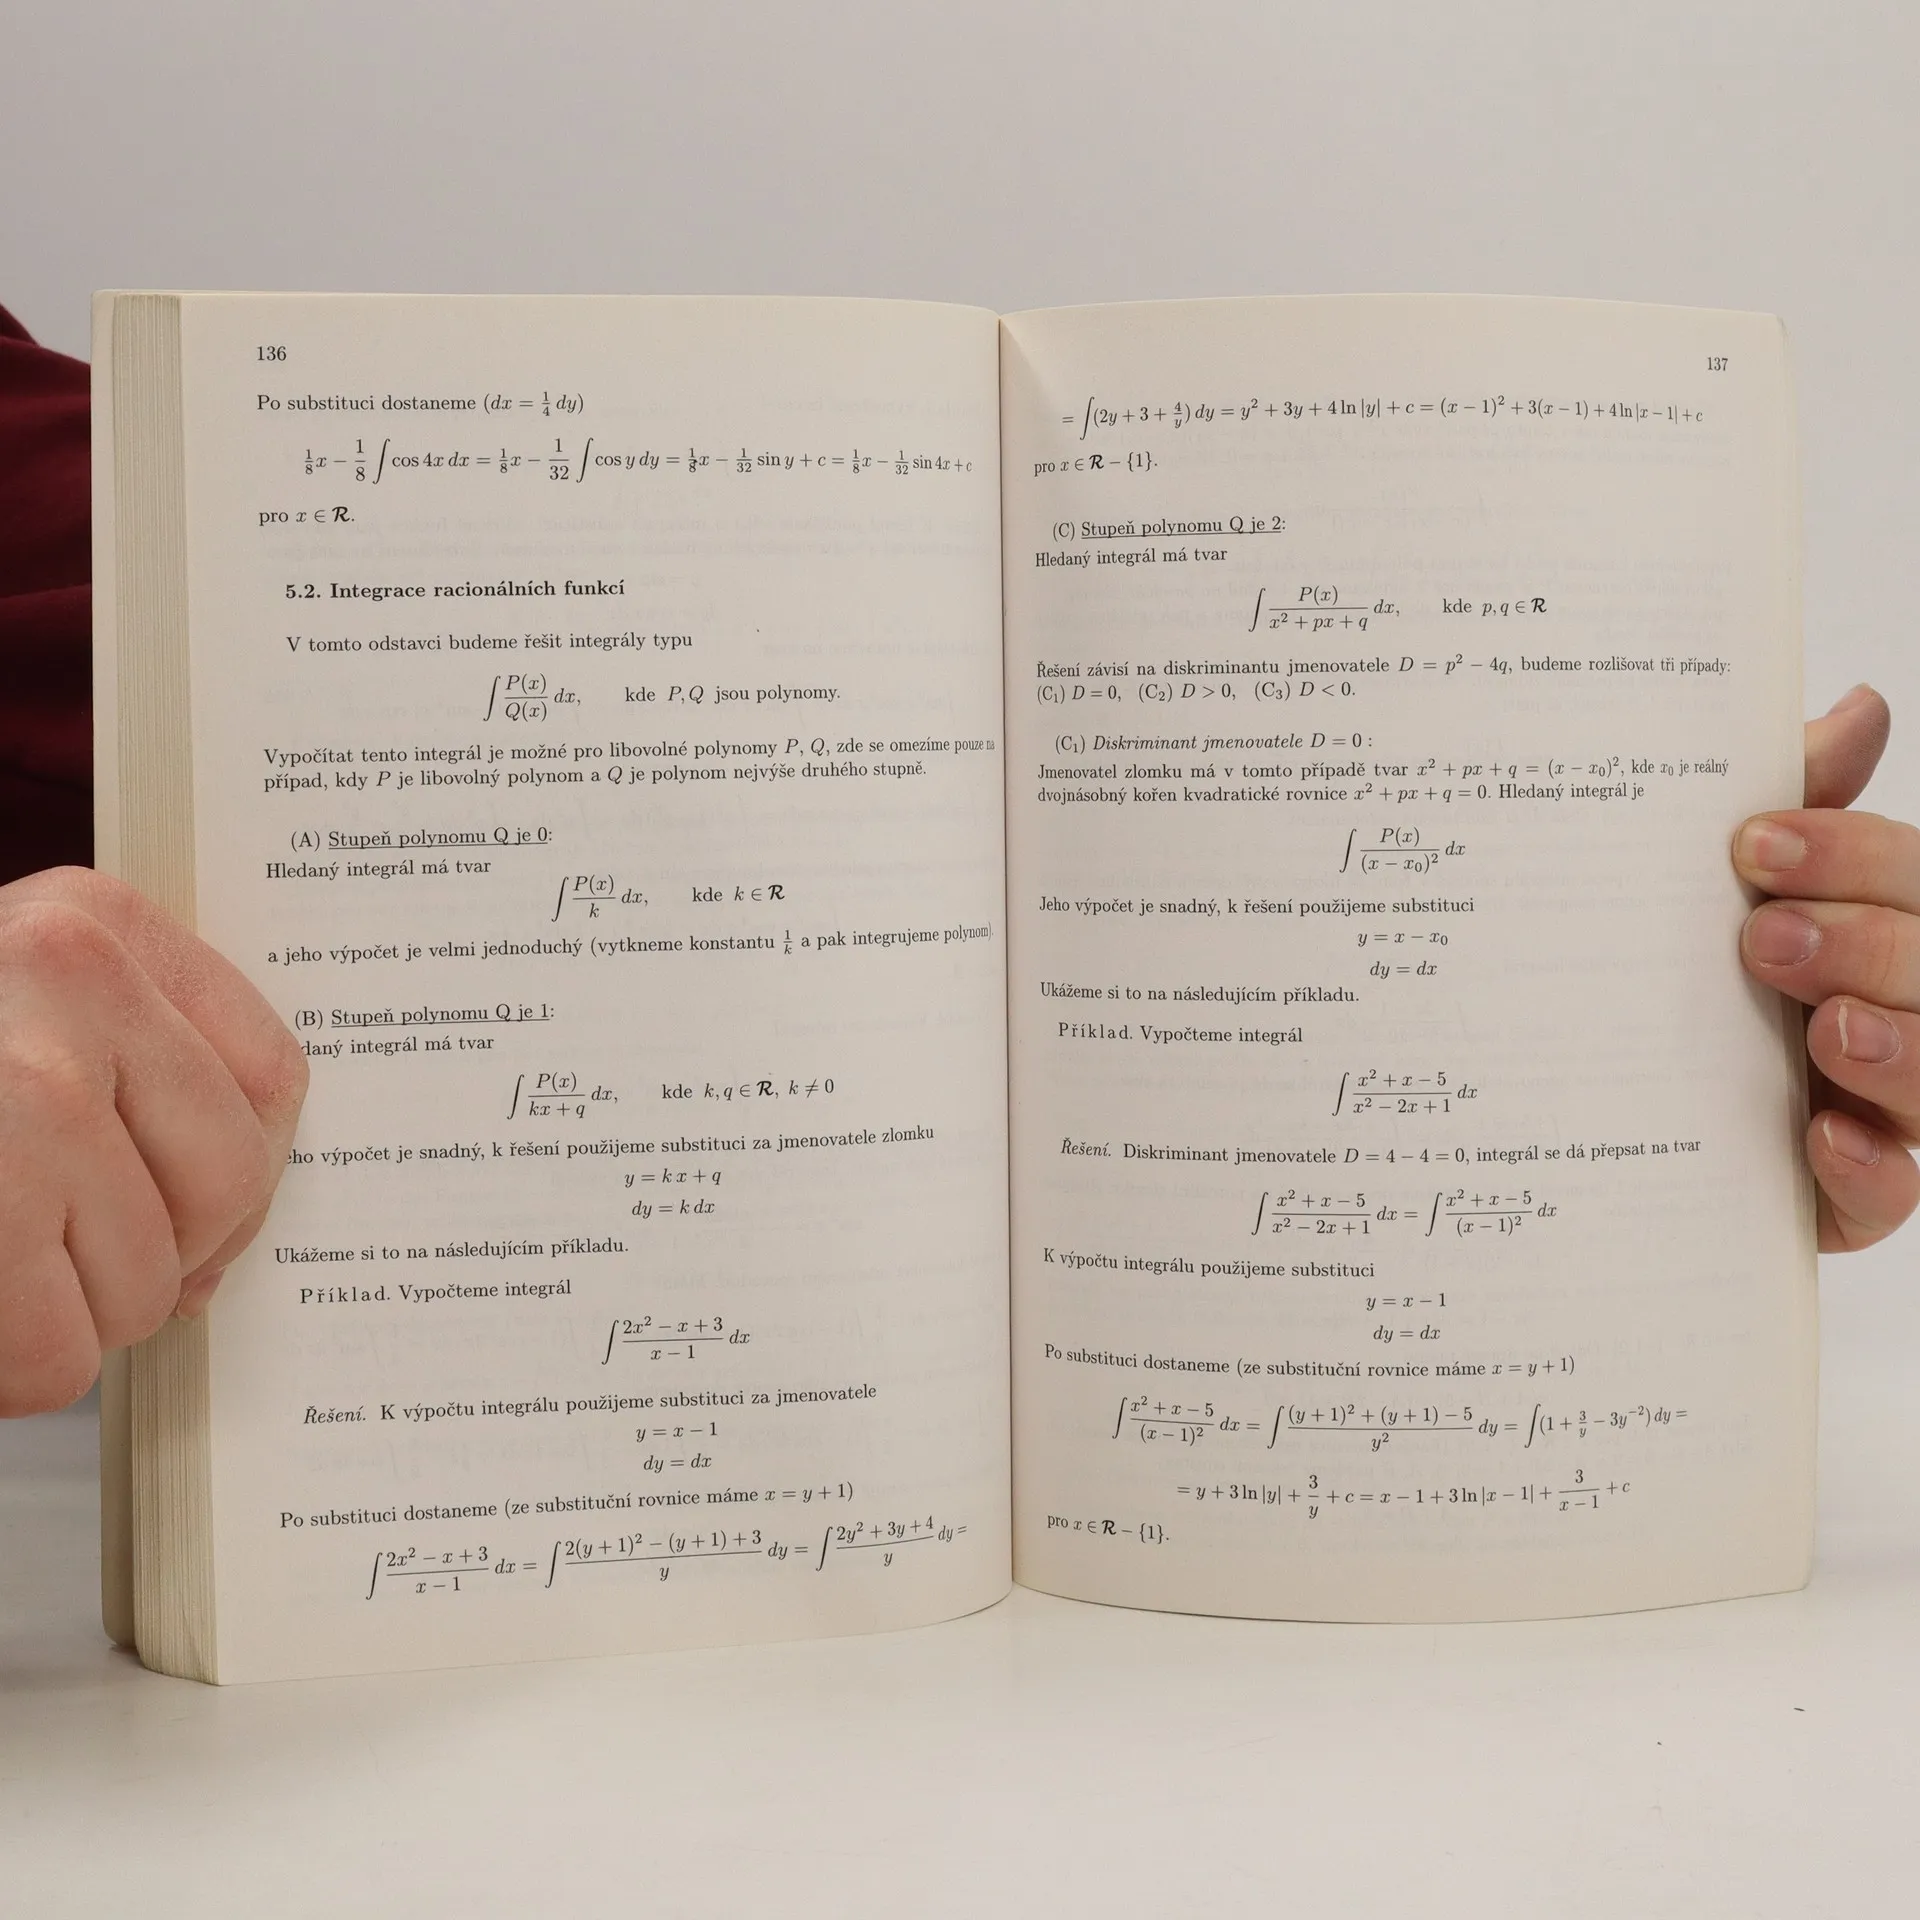 136
Po substituci dostaneme (dx = 1/4 dy)
1/8 x − 1/8 ∫ cos 4x dx = 1/8 x − 1/32 ∫ cos y dy = 1/8 x − 1/32 sin y + c = 1/8 x − 1/32 sin 4x + c
pro x ∈ R.
5.2. Integrace racionálních funkcí
V tomto odstavci budeme řešit integrály typu
∫ P(x)/Q(x) dx, kde P, Q jsou polynomy.
Vypočítat tento integrál je možné pro libovolné polynomy P, Q, zde se omezíme pouze na
případ, kdy P je libovolný polynom a Q je polynom nejvýše druhého stupně.
(A) Stupeň polynomu Q je 0:
Hledaný integrál má tvar
∫ P(x)/k dx, kde k ∈ R
a jeho výpočet je velmi jednoduchý (vytkneme konstantu 1/k a pak integrujeme polynom).
(B) Stupeň polynomu Q je 1:
daný integrál má tvar
∫ P(x)/(kx + q) dx, kde k, q ∈ R, k ≠ 0
eho výpočet je snadný, k řešení použijeme substituci za jmenovatele zlomku
y = k x + q
dy = k dx
Ukážeme si to na následujícím příkladu.
Příklad. Vypočteme integrál
∫ (2x² − x + 3)/(x − 1) dx
Řešení. K výpočtu integrálu použijeme substituci za jmenovatele
y = x − 1
dy = dx
Po substituci dostaneme (ze substituční rovnice máme x = y + 1)
∫ (2x² − x + 3)/(x − 1) dx = ∫ (2(y + 1)² − (y + 1) + 3)/y dy = ∫ (2y² + 3y + 4)/y dy =
137
= ∫(2y + 3 + 4/y) dy = y² + 3y + 4 ln |y| + c = (x − 1)² + 3(x − 1) + 4 ln |x − 1| + c
pro x ∈ R − {1}.
(C) Stupeň polynomu Q je 2:
Hledaný integrál má tvar
∫ P(x)/(x² + px + q) dx, kde p, q ∈ R
Řešení závisí na diskriminantu jmenovatele D = p² − 4q, budeme rozlišovat tři případy:
(C₁) D = 0, (C₂) D > 0, (C₃) D < 0.
(C₁) Diskriminant jmenovatele D = 0 :
Jmenovatel zlomku má v tomto případě tvar x² + px + q = (x − x₀)², kde x₀ je reálný
dvojnásobný kořen kvadratické rovnice x² + px + q = 0. Hledaný integrál je
∫ P(x)/(x − x₀)² dx
Jeho výpočet je snadný, k řešení použijeme substituci
y = x − x₀
dy = dx
Ukážeme si to na následujícím příkladu.
Příklad. Vypočteme integrál
∫ (x² + x − 5)/(x² − 2x + 1) dx
Řešení. Diskriminant jmenovatele D = 4 − 4 = 0, integrál se dá přepsat na tvar
∫ (x² + x − 5)/(x² − 2x + 1) dx = ∫ (x² + x − 5)/(x − 1)² dx
K výpočtu integrálu použijeme substituci
y = x − 1
dy = dx
Po substituci dostaneme (ze substituční rovnice máme x = y + 1)
∫ (x² + x − 5)/(x − 1)² dx = ∫ ((y + 1)² + (y + 1) − 5)/y² dy = ∫(1 + 3/y − 3y⁻²) dy =
= y + 3 ln |y| + 3/y + c = x − 1 + 3 ln |x − 1| + 3/(x − 1) + c
pro x ∈ R − {1}.